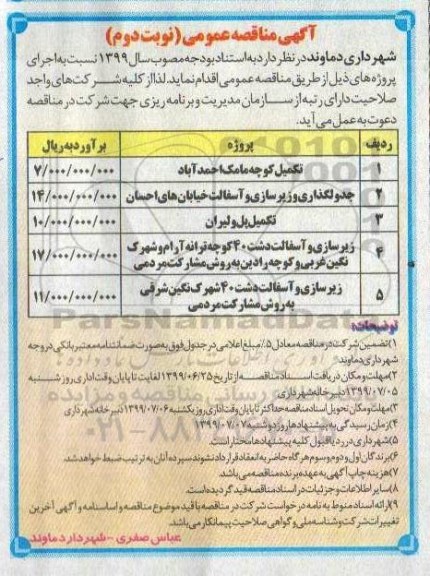 آگهی مناقصه عمومی (نوبت دوم)
شهرداری دماوند در نظر دارد به استناد بودجه مصوب سال ۱۳۹۹ نسبت به اجرای
پروژه‌های ذیل از طریق مناقصه عمومی اقدام نماید. لذا از کلیه شرکت‌های واجد
صلاحیت دارای رتبه از سازمان مدیریت و برنامه ریزی جهت شرکت در مناقصه
دعوت به عمل می‌آید.
ردیف پروژه برآورد به ریال
۱ تکمیل کوچه مامک احمدآباد ۷/۰۰۰/۰۰۰/۰۰۰
۲ جدولگذاری و زیرسازی و آسفالت خیابان‌های احسان ۱۴/۰۰۰/۰۰۰/۰۰۰
۳ تکمیل پل ولیران ۱۰/۰۰۰/۰۰۰/۰۰۰
۴ زیرسازی و آسفالت دشت ۴۰ کوچه ترانه آرام و شهرک
نگین غربی و کوچه رادین به روش مشارکت مردمی ۱۷/۰۰۰/۰۰۰/۰۰۰
۵ زیرسازی و آسفالت دشت ۴۰ شهرک نگین شرقی
به روش مشارکت مردمی ۱۱/۰۰۰/۰۰۰/۰۰۰
توضیحات:
۱) تضمین شرکت در مناقصه معادل ۵٪ مبلغ اعلامی در جدول فوق به صورت ضمانتنامه معتبر بانکی در وجه
شهرداری دماوند:
۲) مهلت و مکان دریافت اسناد مناقصه از تاریخ ۱۳۹۹/۰۶/۲۵ لغایت تا پایان وقت اداری روز شنبه
۱۳۹۹/۰۷/۰۵ دبیرخانه شهرداری
۳) مهلت و مکان تحویل اسناد مناقصه حداکثر تا پایان وقت اداری روز یکشنبه ۱۳۹۹/۰۷/۰۶ دبیرخانه شهرداری
۴) زمان رسیدگی به پیشنهادها روز دوشنبه ۱۳۹۹/۰۷/۰۷
۵) شهرداری در رد یا قبول کلیه پیشنهادها مختار است.
۶) برندگان اول و دوم و سوم هرگاه حاضر به انعقاد قرارداد نشوند سپرده آنان به ترتیب ضبط خواهد شد.
۷) هزینه چاپ آگهی به عهده برنده مناقصه می‌باشد.
۸) سایر اطلاعات و جزئیات در اسناد مناقصه قید گردیده است.
۹) ارائه اسناد منوط به نامه درخواست شرکت در مناقصه با قید موضوع مناقصه و اساسنامه و آگهی آخرین
تغییرات شرکت و شناسه ملی و گواهی صلاحیت پیمانکار می‌باشد.
عباس صفری - شهردار دماوند